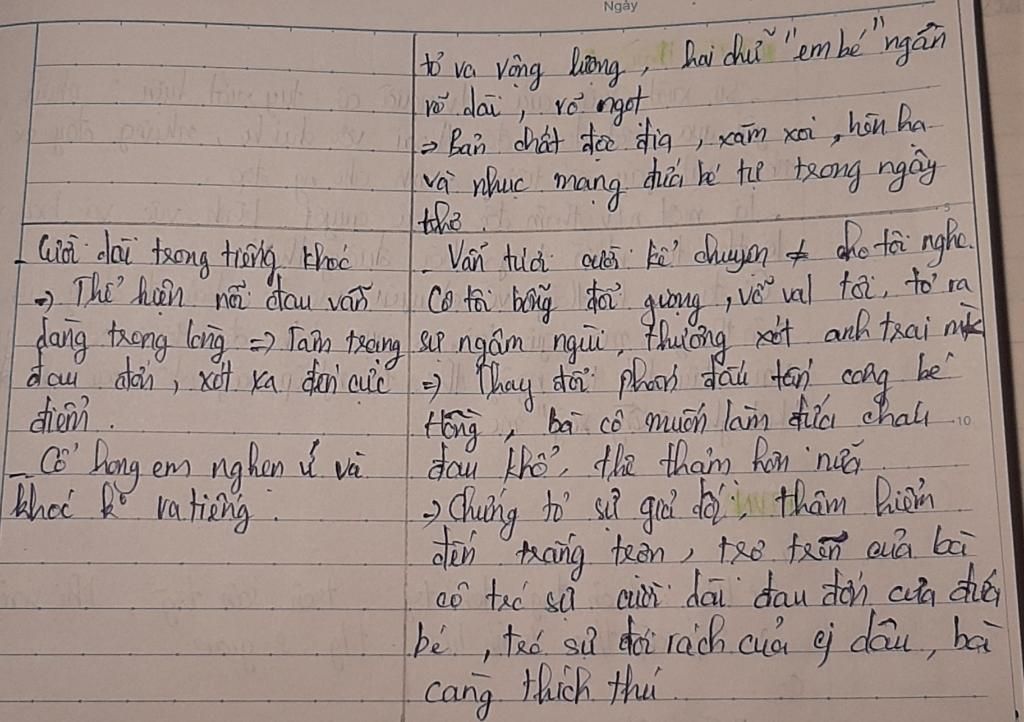 Ngày
tỏ va vộng lương, hai chữ "em bé" ngân
rõ dài, rõ ngọt
⇒ Bản chất độc địa, xăm xoi, hỗn ha
và nhục mạng đứa bé tự trong ngây
thơ.
- Cười dài trong tiếng khóc
⇒ Thể hiện nỗi đau vẫn
dạng trong lòng ⇒ Tâm trạng
đau đớn, xót xa đến cực
điểm.
- Cổ họng em nghẹn ứ và
khóc k° ra tiếng.
- Vẫn tươi cười kể chuyện cho tôi nghe.
Cô tôi bỗng đổi giọng, vỗ vai tôi, tỏ ra
sự ngậm ngùi, thương xót anh trai mk
⇒ Thay đổi phon đấu tấn công bé
Hồng, bà cô muốn làm đứa cháu
đau khổ, thê thảm hơn nữa
⇒ Chứng tỏ sự giả dối, thâm hiểm
đến trắng trợn, trơ trẽn của bà
cô trc sự cười dài đau đớn của đứa
bé, trc sự đói rách của dâu, bà
càng thích thú
10